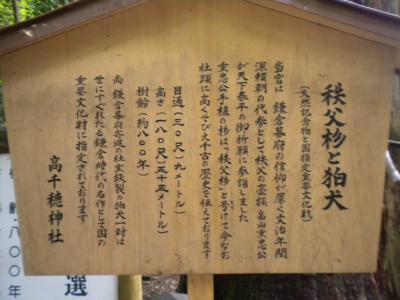 秩父杉と狛犬
（天然記念物と国指定重要文化財）
当宮は 鎌倉幕府の信仰が厚く文治年間
源頼朝の代参として秩父の豪族畠山重忠公
が天下泰平の御祈願に参詣しました
重忠公手植の杉は"秩父杉"と号けて今なお
社頭に高くそびえ千古の歴史を伝えております
目通（三〇尺）九メートル
高さ（一八〇尺）五十五メートル
樹齢（約八〇〇年）
尚 鎌倉幕府寄進の社宝鉄製の狛犬一対は
世にすぐれたる鎌倉時代の名作として国の
重要文化財に指定されております
高千穂神社
齢・八〇〇年
選